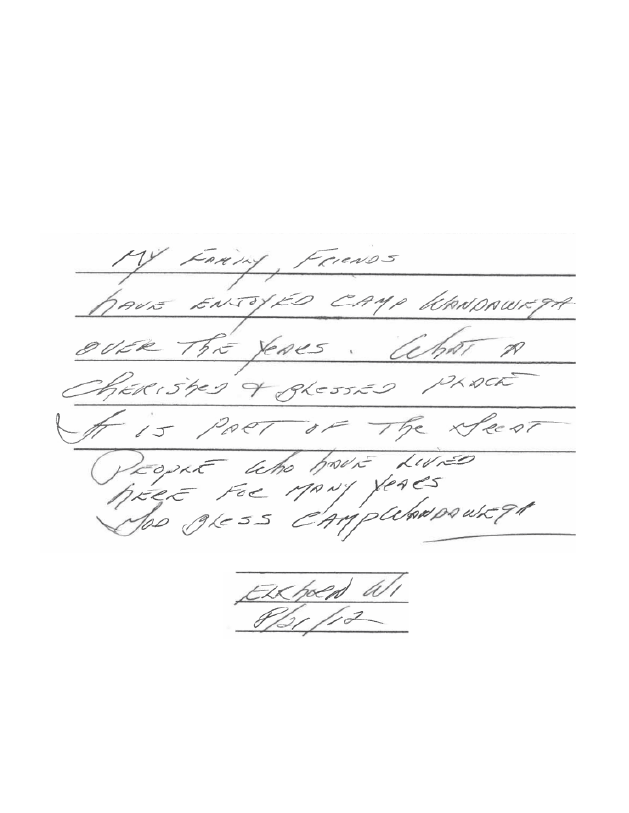 My Family, Friends
have enjoyed Camp Wandawega
over the years. What a
Cherished & Blessed Place
It is Part of the Great
People who have lived
here for many years
God Bless Camp Wandawega
Elkhorn WI
8/21/12